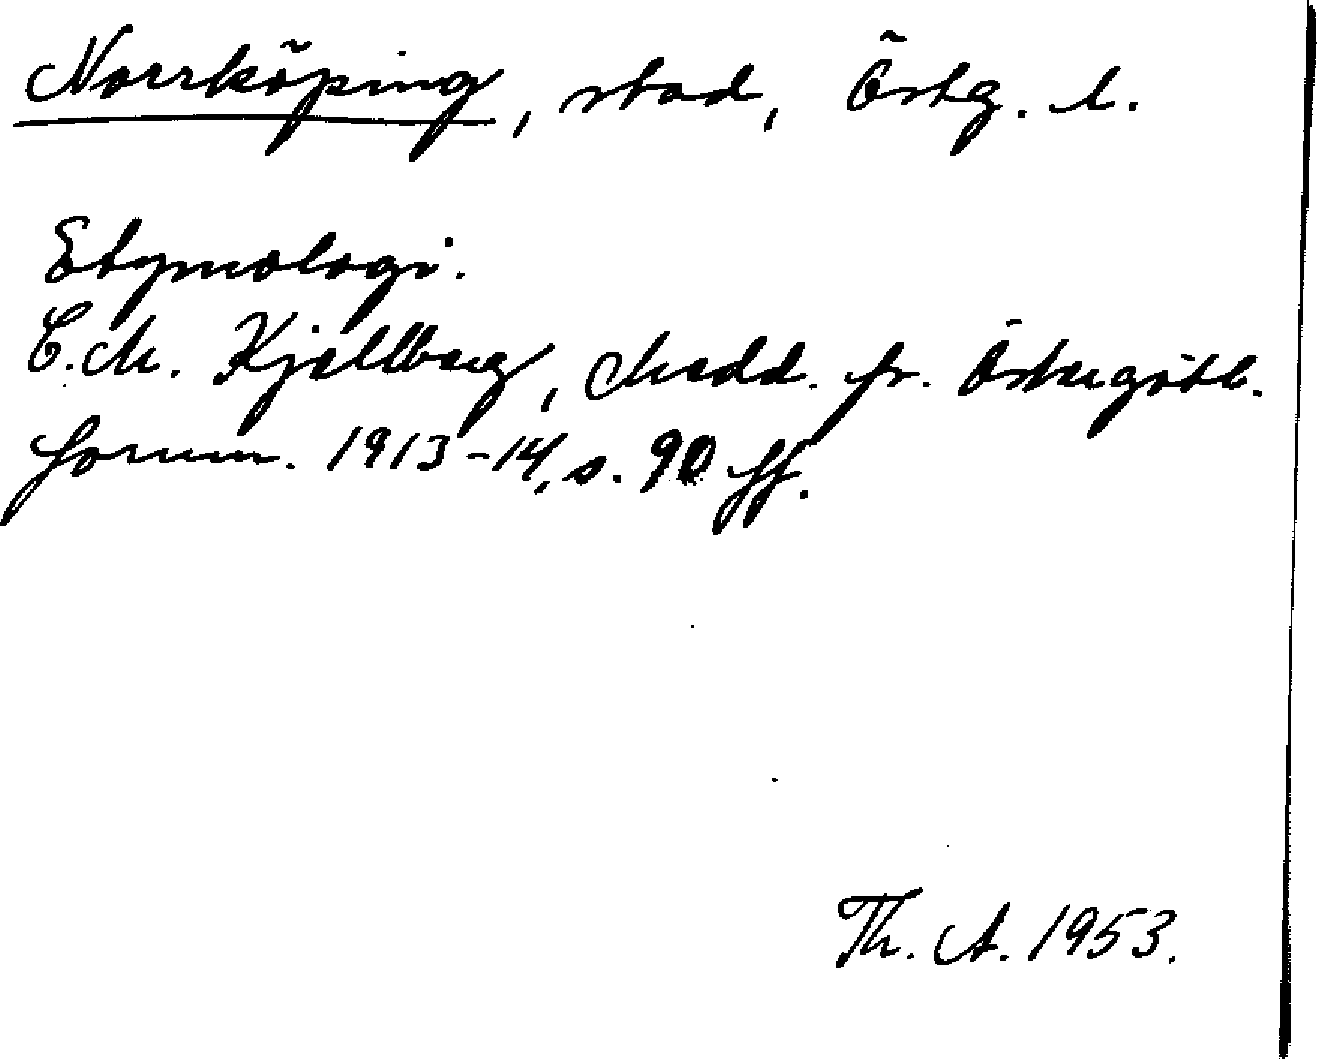 Norrköping, stad, Östg. l.
Etymologi.
C.M. Kjellberg, Medd. fr. Östergötl.
fornm. 1913-14, s. 90 ff.
Th. A. 1953.